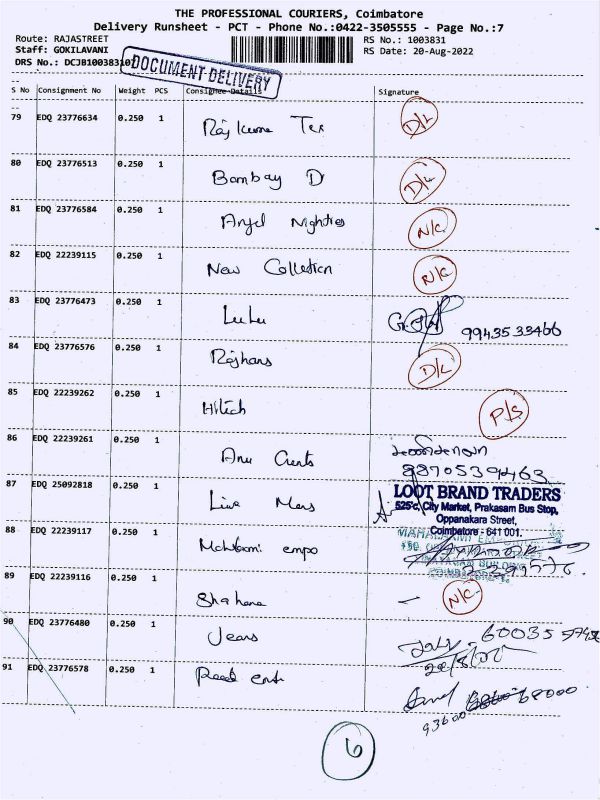 THE PROFESSIONAL COURIERS, Coimbatore
Delivery Runsheet - PCT - Phone No.:0422-3505555 - Page No.:7
Route: RAJASTREET
RS No.: 1003831
Staff: GOKILAVANI
RS Date: 20-Aug-2022
DRS No.: DCJB10038310
DOCUMENT DELIVERY
S No Consignment No Weight PCS Consignee Details Signature
79 EDQ 23776634 0.250 1 Rajkumar Tex D/L
80 EDQ 23776513 0.250 1 Bombay D D/L
81 EDQ 23776584 0.250 1 Angel Nighties N/C
82 EDQ 22239115 0.250 1 New Colletion N/C
83 EDQ 23776473 0.250 1 LuLu 9943533466
84 EDQ 23776576 0.250 1 Rajhans D/L
85 EDQ 22239262 0.250 1 Hitech P/S
86 EDQ 22239261 0.250 1 Anu 
87 EDQ 25092818 0.250 1 Live Mens
LOOT BRAND TRADERS
525'c, City Market, Prakasam Bus Stop,
Oppanakara Street,
Coimbatore - 641 001.
88 EDQ 22239117 0.250 1 empo
89 EDQ 22239116 0.250 1 Shahana N/C
90 EDQ 23776480 0.250 1 Jeans
91 EDQ 23776578 0.250 1
6